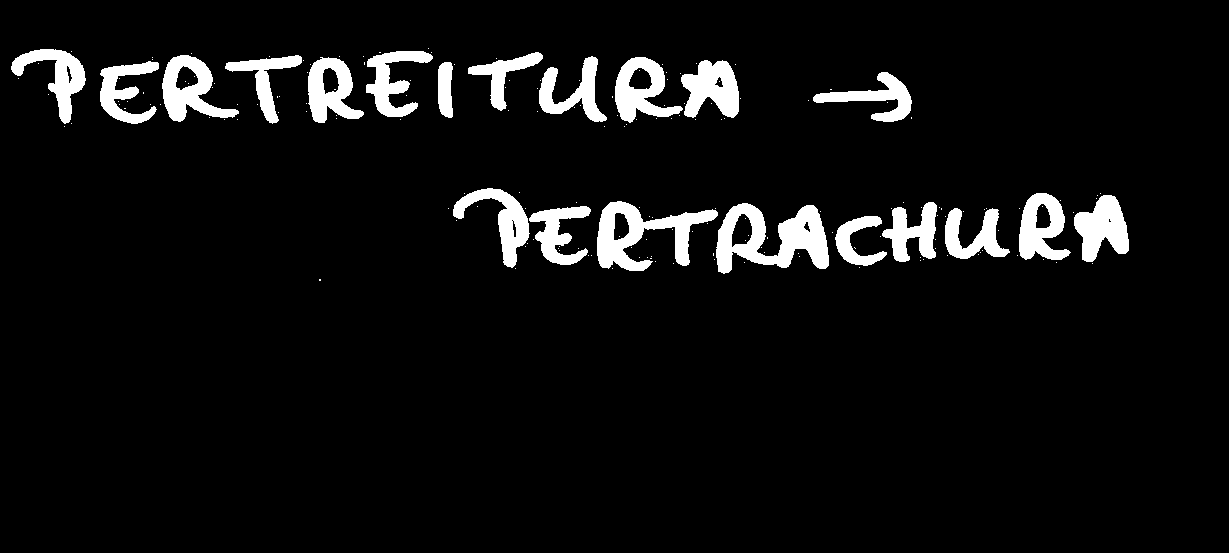 PERTREITURA →
PERTRACHURA